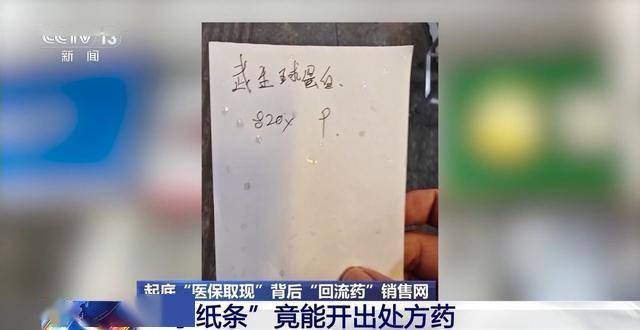 CCTV 13
新闻
武生球蛋白
820x
起底“医保取现”背后“回流药”销售网
纸条”竟能开出处方药